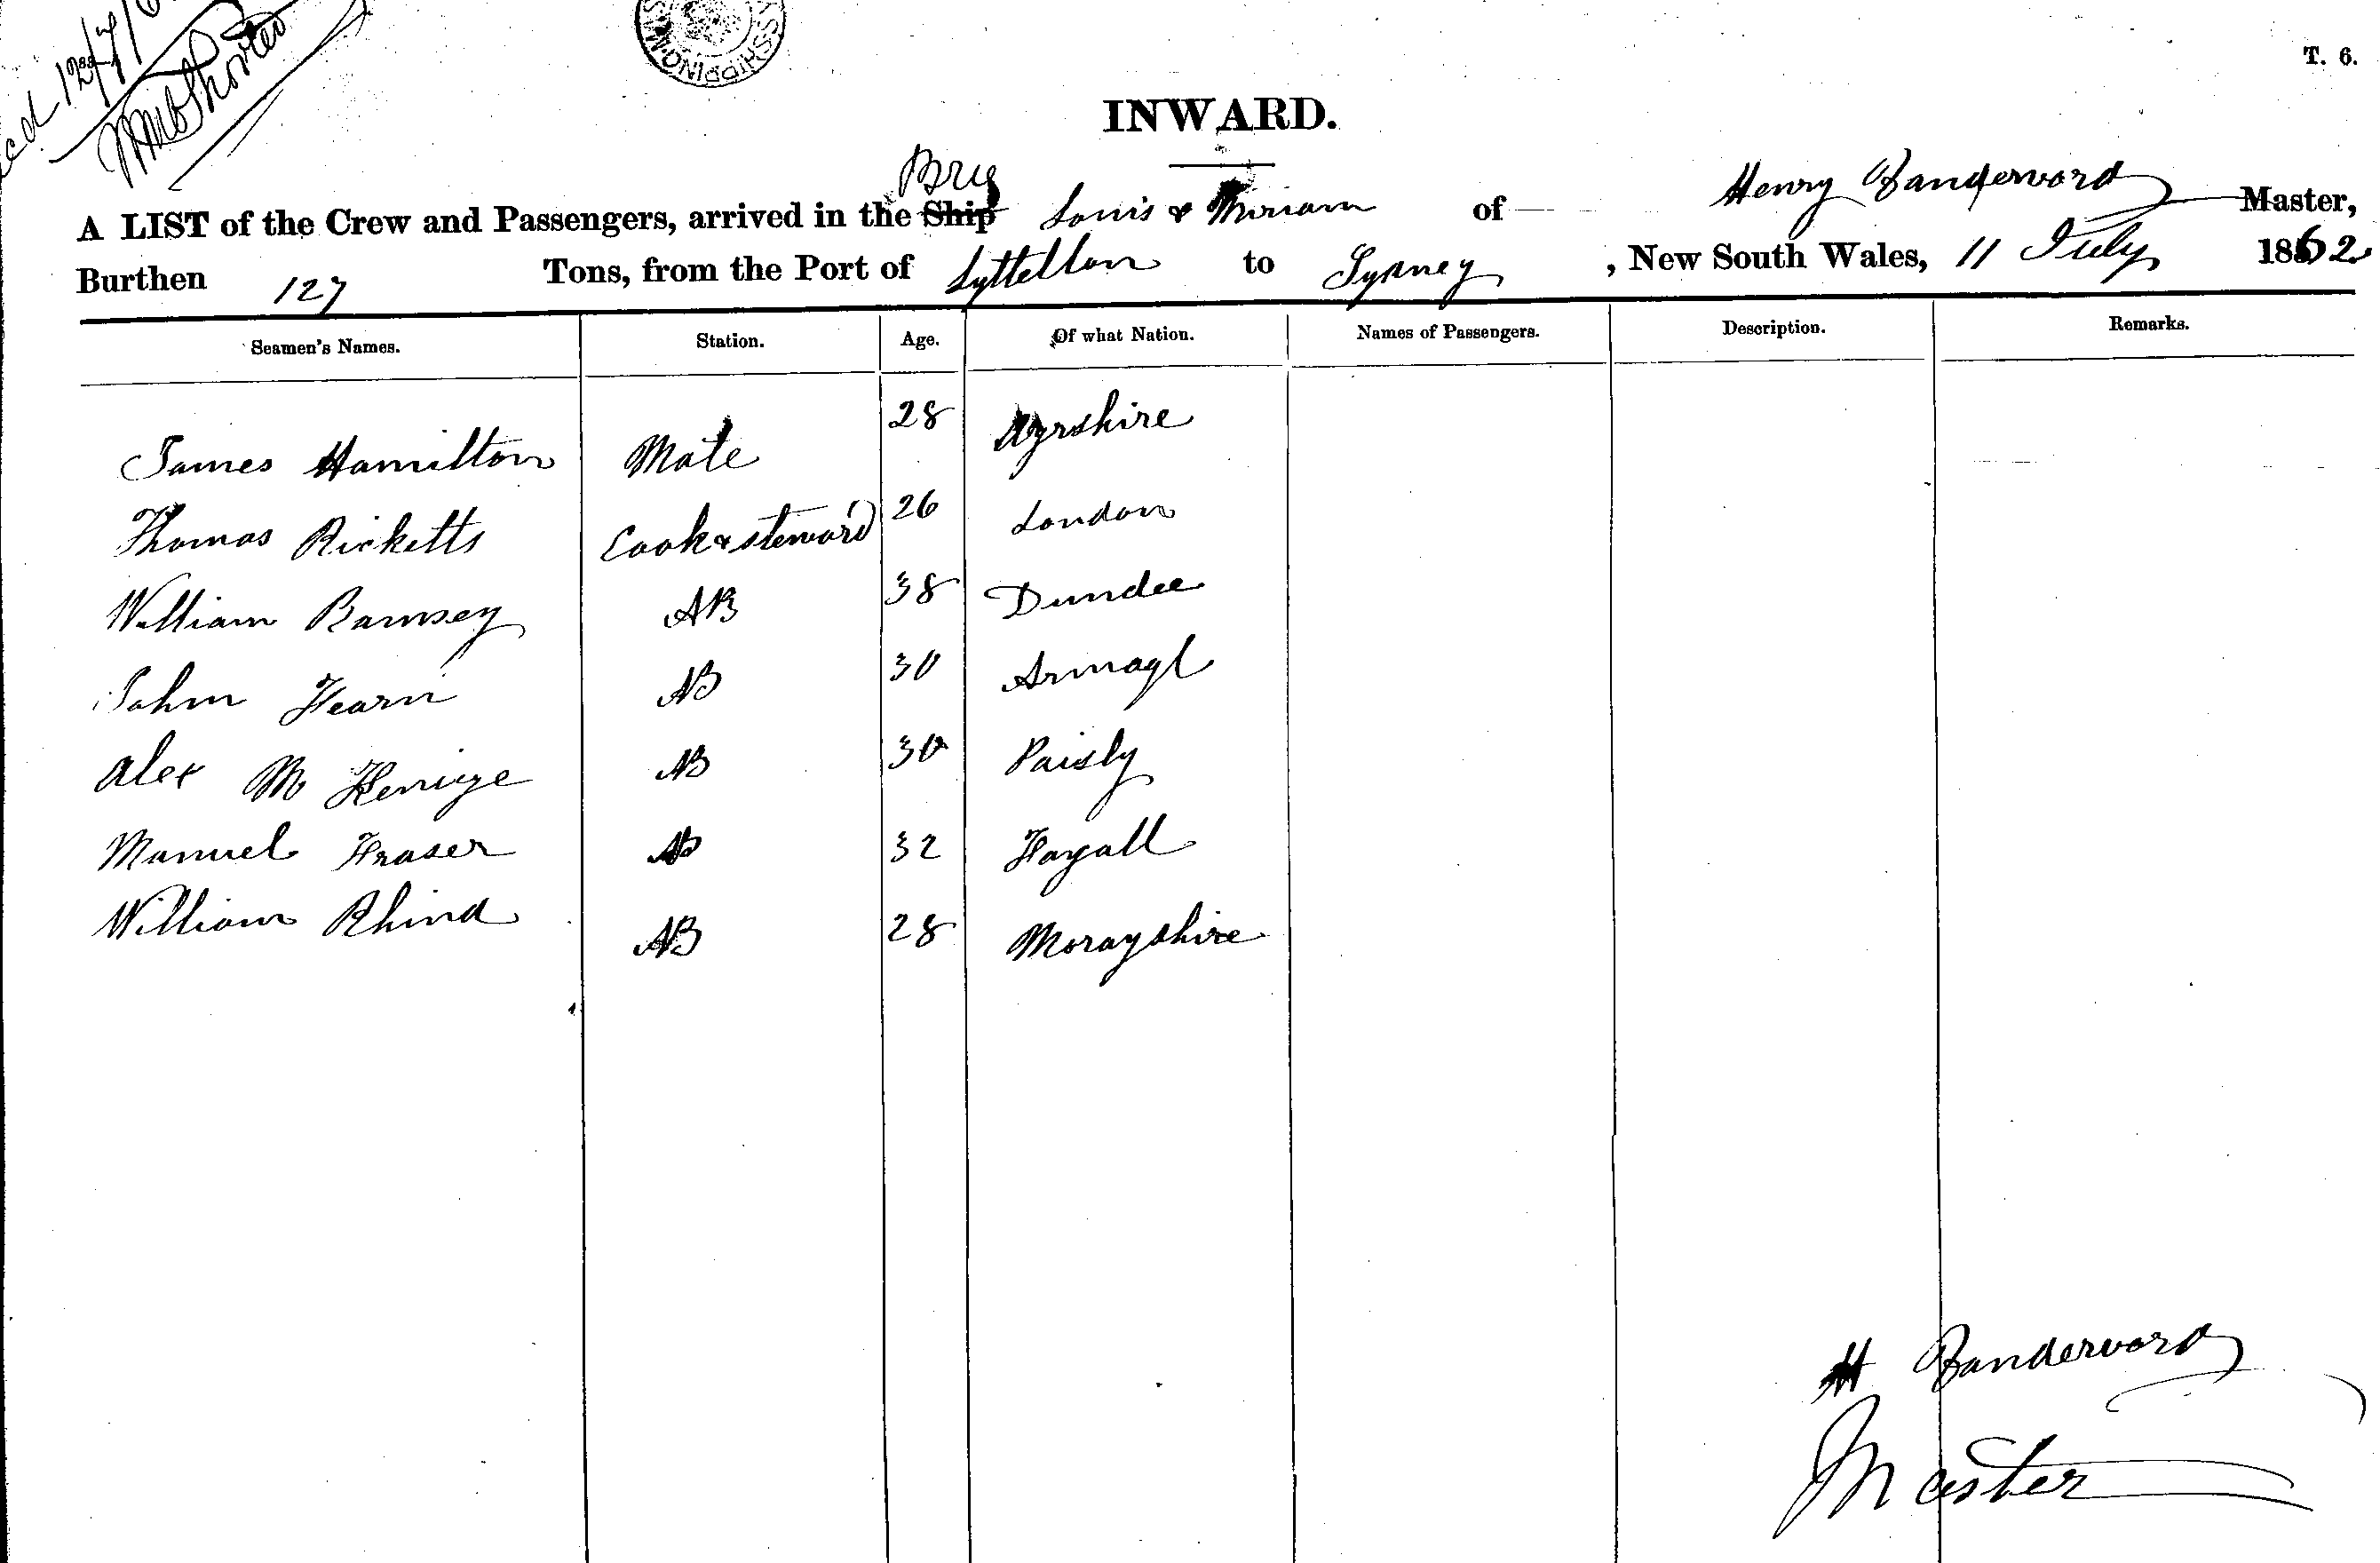 12/7/6
SHIPPING
T. 6.
INWARD.
Brig
A LIST of the Crew and Passengers, arrived in the Ship Louis & Miriam of Henry Vandervord Master,
Burthen 127 Tons, from the Port of Lyttelton to Sydney, New South Wales, 11 July 1862
Seamen's Names. Station. Age. Of what Nation. Names of Passengers. Description. Remarks.
James Hamilton Mate 28 Ayrshire
Thomas Ricketts Cook & steward 26 London
William Ramsey AB 38 Dundee
John Fearn AB 30 Armagh
Alex Mc AB 30 Paisly
Manuel Fraser AB 32 Fayall
William Rhind AB 28 Morayshire
H Vandervord
Master